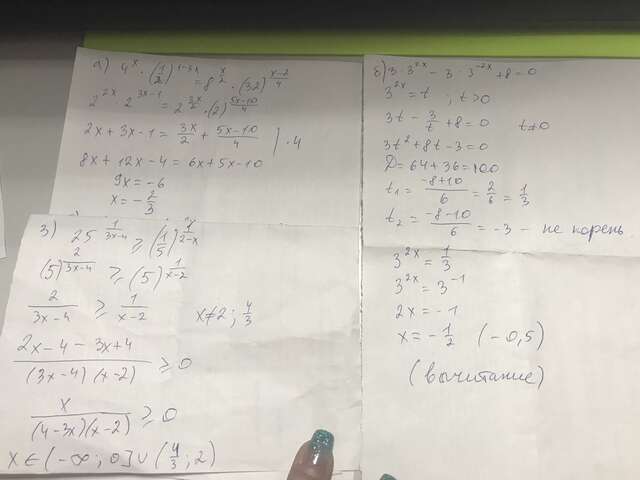 а) 4^x · (1/2)^{1-3x} = 8^{x/2} · (32)^{(x-2)/4}
2^{2x} · 2^{3x-1} = 2^{3x/2} · (2)^{(5x-10)/4}
2x + 3x - 1 = 3x/2 + (5x-10)/4 | · 4
8x + 12x - 4 = 6x + 5x - 10
9x = -6
x = -2/3
3) 25^{1/(3x-4)} ≥ (1/5)^{1/(2-x)}
(5)^{2/(3x-4)} ≥ (5)^{1/(x-2)}
2/(3x-4) ≥ 1/(x-2) x ≠ 2; 4/3
(2x - 4 - 3x + 4)/((3x-4)(x-2)) ≥ 0
x/((4-3x)(x-2)) ≥ 0
x ∈ (-∞; 0] ∪ (4/3; 2)
б) 3 · 3^{2x} - 3 · 3^{-2x} + 8 = 0
3^{2x} = t ; t > 0
3t - 3/t + 8 = 0 t ≠ 0
3t² + 8t - 3 = 0
D = 64 + 36 = 100
t₁ = (-8+10)/6 = 2/6 = 1/3
t₂ = (-8-10)/6 = -3 - не корень
3^{2x} = 1/3
3^{2x} = 3^{-1}
2x = -1
x = -1/2 (-0,5)
(вычитание)